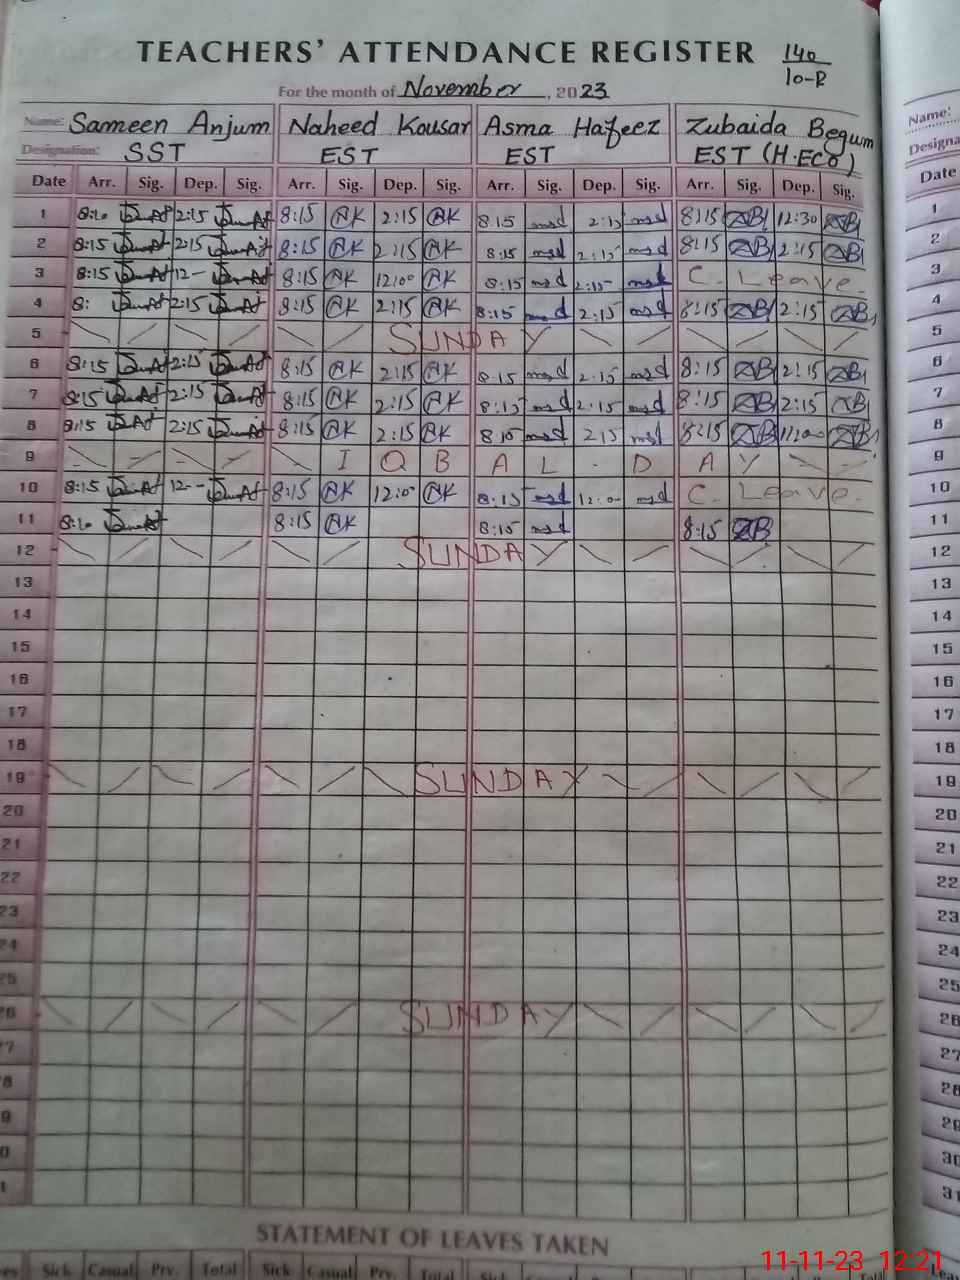 TEACHERS' ATTENDANCE REGISTER 140/10-R
For the month of November, 2023
Name: Sameen Anjum Naheed Kousar Asma Hafeez Zubaida Begum Name:
Designation: SST EST EST EST (H.ECO) Designa
Date Arr. Sig. Dep. Sig. Arr. Sig. Dep. Sig. Arr. Sig. Dep. Sig. Arr. Sig. Dep. Sig. Date
1 8:10 2:15 8:15 NK 2:15 NK 8:15 msd 2:15 msd 8:15 ZB 12:30 ZB 1
2 8:15 2:15 8:15 NK 2:15 NK 8:15 msd 2:15 msd 8:15 ZB 2:15 ZB 2
3 8:15 12-- 8:15 NK 12:00 NK 8:15 msd 2:15 msd C. Leave. 3
4 8: 2:15 8:15 NK 2:15 NK 8:15 msd 2:15 msd 8:15 ZB 2:15 ZB 4
5 SUNDAY 5
6 8:15 2:15 8:15 NK 2:15 NK 8:15 msd 2:15 msd 8:15 ZB 2:15 ZB 6
7 8:15 2:15 8:15 NK 2:15 NK 8:15 msd 2:15 msd 8:15 ZB 2:15 ZB 7
8 8:15 2:15 8:15 NK 2:15 NK 8:15 msd 2:15 msd 8:15 ZB 11:00 ZB 8
9 IQBAL - DAY 9
10 8:15 12-- 8:15 NK 12:00 NK 8:15 msd 12:00 msd C. Leave. 10
11 8:10 8:15 NK 8:15 msd 8:15 ZB 11
12 SUNDAY 12
13 13
14 14
15 15
16 16
17 17
18 18
19 SUNDAY 19
20 20
21 21
22 22
23 23
24 24
25 25
26 SUNDAY 26
27 27
28 28
29 29
30 30
31 31
STATEMENT OF LEAVES TAKEN
Sick Casual Prv. Total Sick Casual Prv. Total Sick
11-11-23 12:21